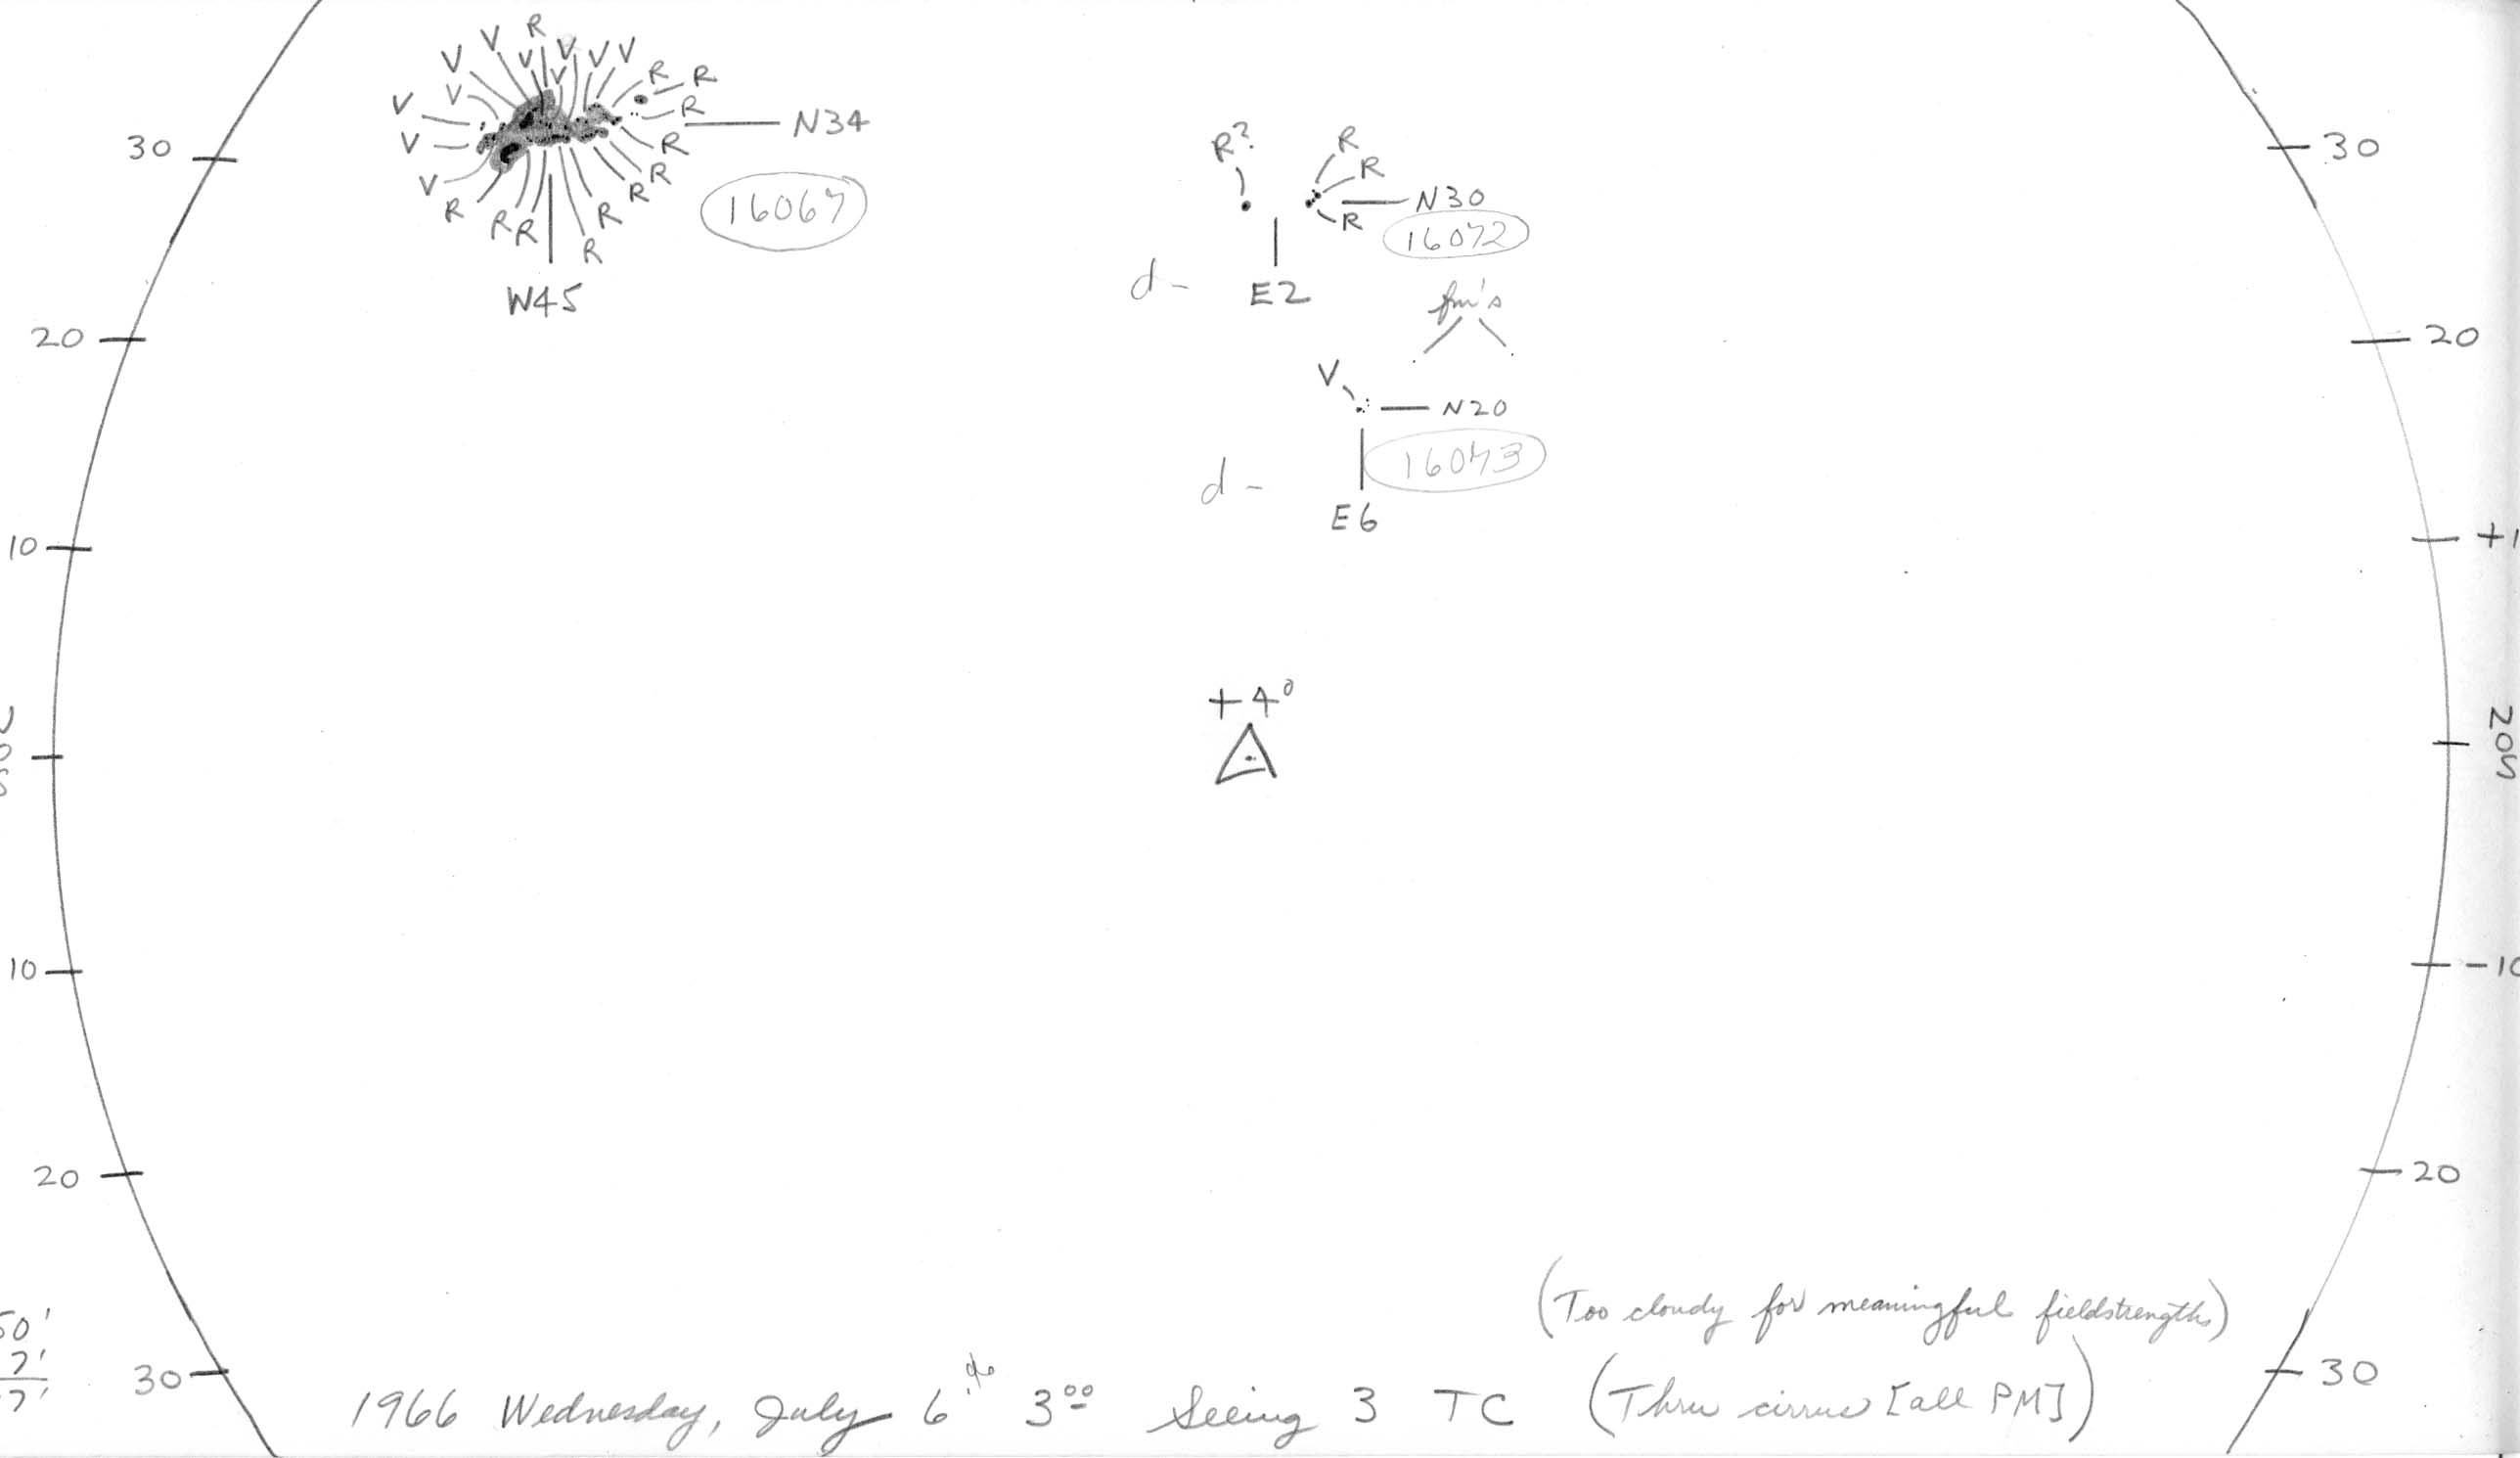 R
V V V V V
V V
R R
V V R
N34
30
V R
V R
R R R R R
R
16067
W45
R?
R
R
N30
R
16072
d - E2
fm's
30
20
20
V
N20
16073
d -
E6
10
+1
+4°
N
0
S
10
-10
20
20
50'
7'
7'
30
(Too cloudy for meaningful fieldstrengths)
30
1966 Wednesday, July 6 3⁰⁰ Seeing 3 TC (Thru cirrus [all PM])